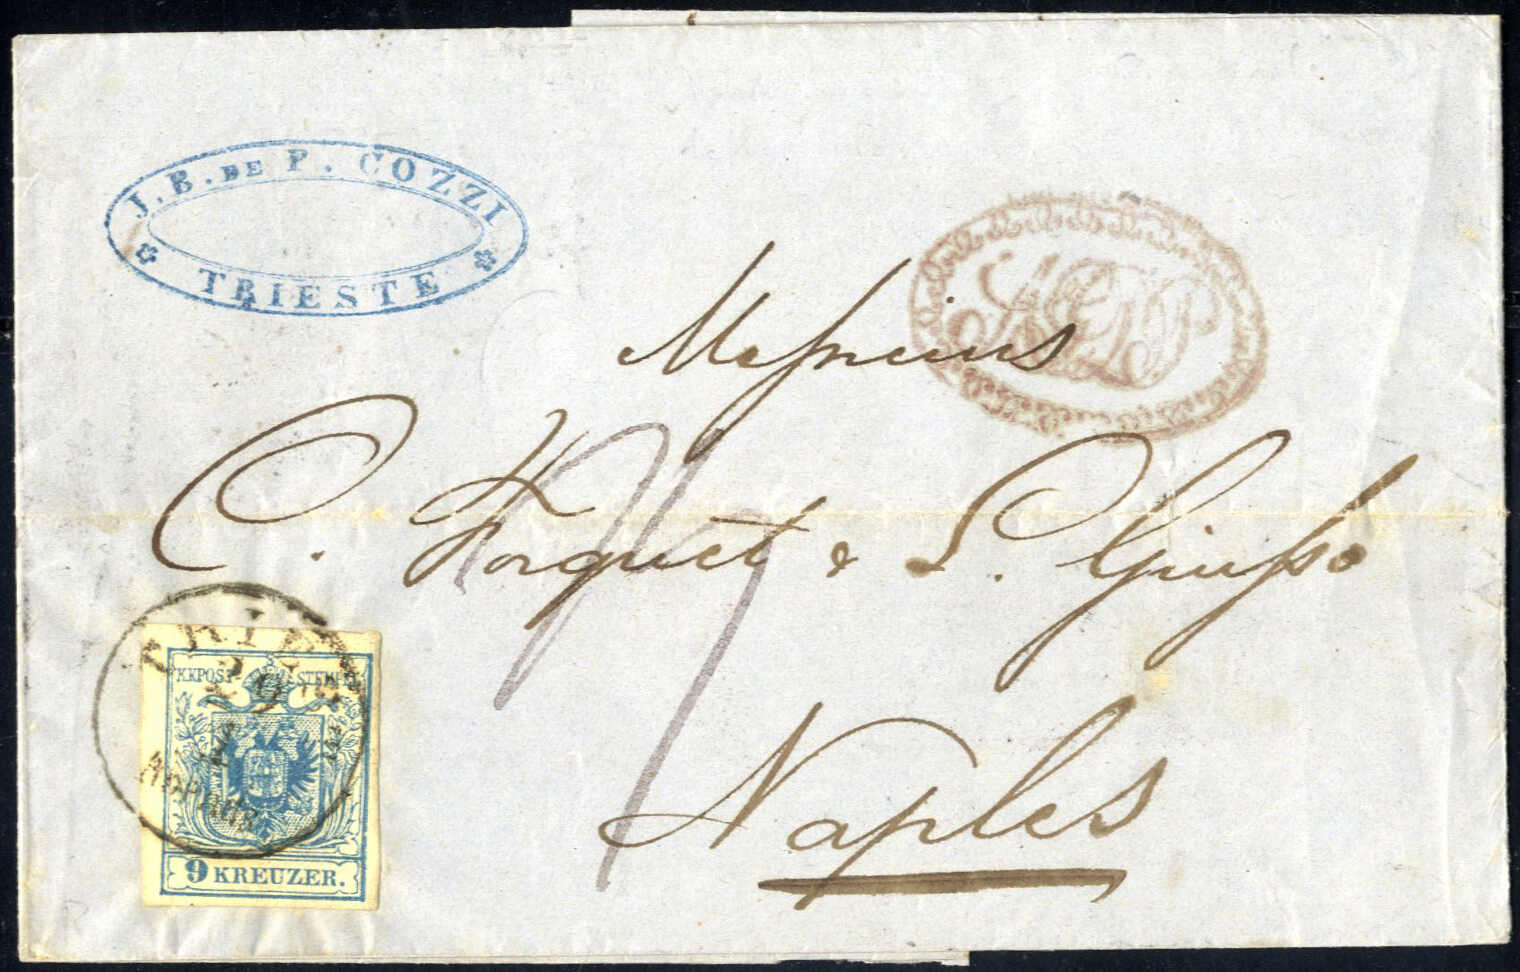 J. B. DE P. COZZI
TRIESTE
Messieurs
C. Forquet & L. Giusso
Naples
KKPOST STEMPEL
9 KREUZER.